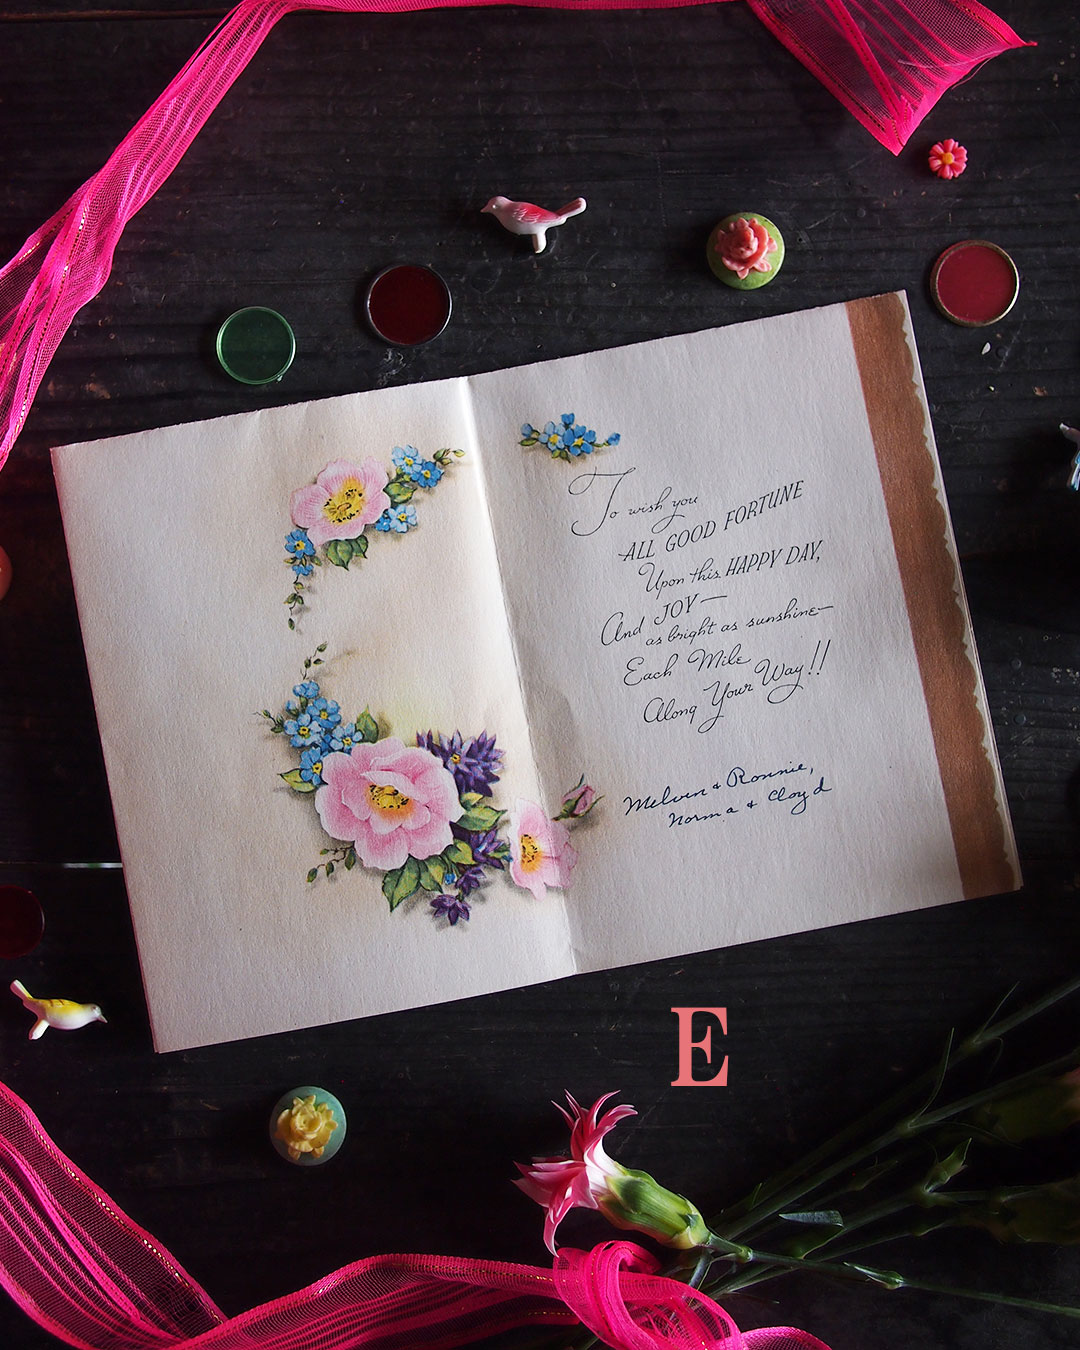 To wish you
ALL GOOD FORTUNE
Upon this HAPPY DAY,
And JOY—
as bright as sunshine—
Each Mile
Along Your Way!!
Melvin & Ronnie,
Norma & Cloyd
E